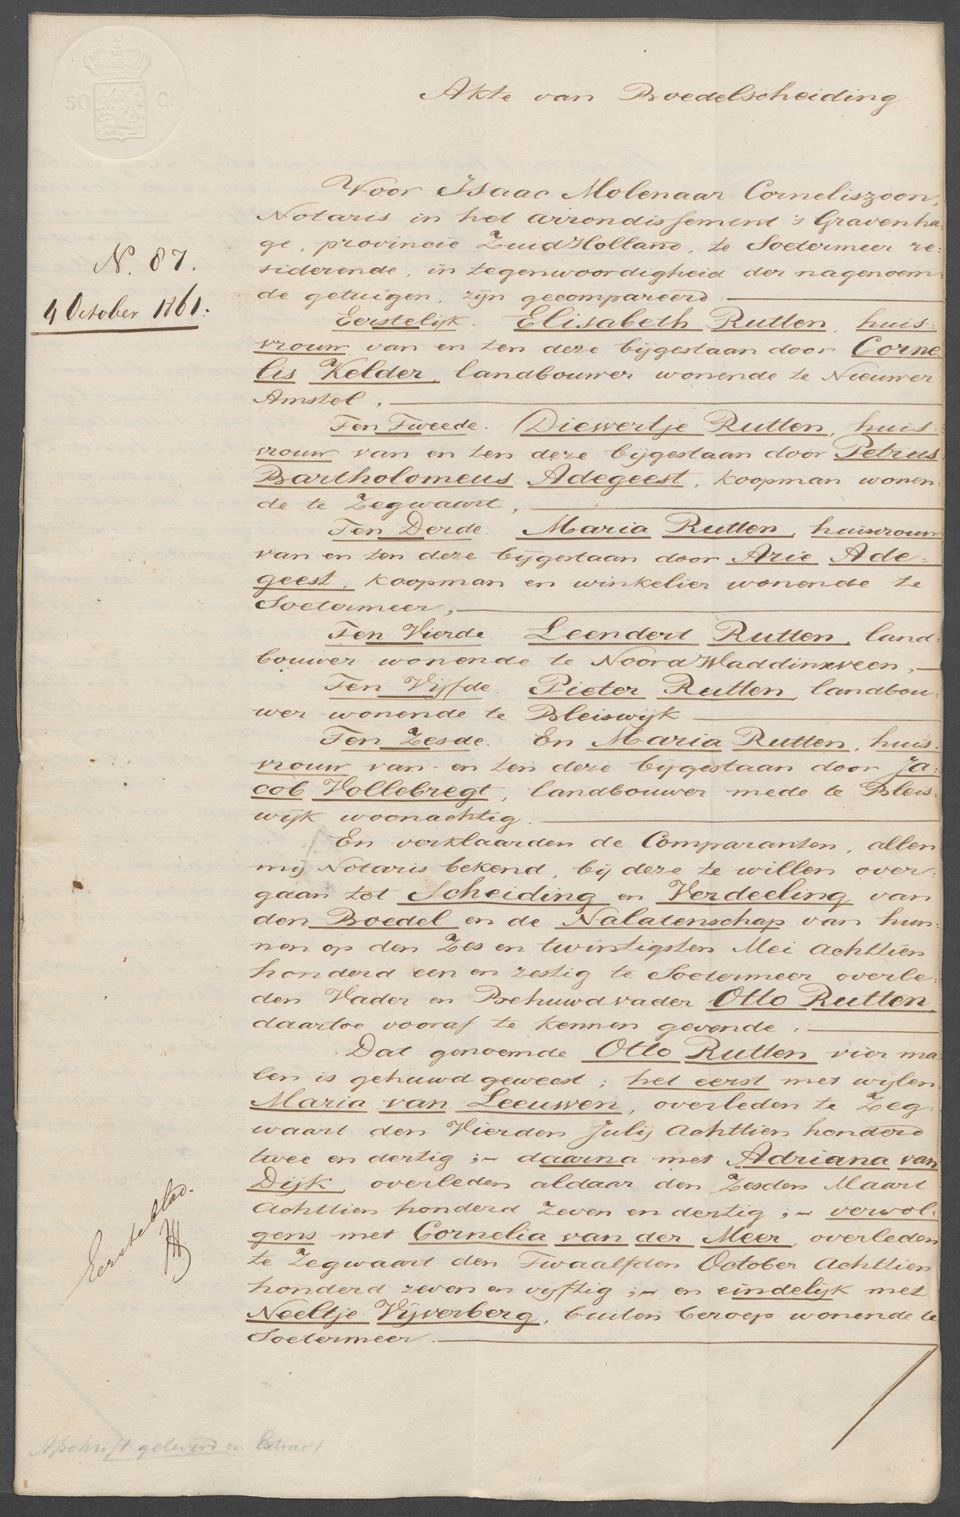 50 C.
Akte van Boedelscheiding
N. 87.
4 October 1861.
Voor Isaac Molenaar Corneliszoon,
Notaris in het arrondissement 's Gravenha-
ge, provincie Zuid Holland, te Soetermeer re-
siderende, in tegenwoordigheid der nagenoem-
de getuigen, zijn gecompareerd
Eerstelijk. Elisabeth Rutten, huis-
vrouw van en ten deze bijgestaan door Corne-
lis Kelder, landbouwer wonende te Nieuwer
Amstel,
Ten Tweede. Diewertje Rutten, huis-
vrouw van en ten deze bijgestaan door Petrus
Bartholomeus Adegeest, koopman wonen-
de te Zegwaart,
Ten Derde. Maria Rutten, huisvrouw
van en ten deze bijgestaan door Arie Ade-
geest, koopman en winkelier wonende te
Soetermeer,
Ten Vierde Leendert Rutten, land-
bouwer wonende te Noord Waddinxveen,
Ten Vijfde. Pieter Rutten, landbou-
wer wonende te Bleiswijk
Ten Zesde. En Maria Rutten, huis-
vrouw van en ten deze bijgestaan door Ja-
cob Vollebregt, landbouwer mede te Bleis-
wijk woonachtig.
En verklaarden de Comparanten, allen
mij Notaris bekend, bij deze te willen over-
gaan tot Scheiding en Verdeeling van
den Boedel en de Nalatenschap van hun-
nen op den Zes en twintigsten Mei Achttien
honderd een en zestig te Soetermeer overle-
den Vader en Behuwdvader Otto Rutten,
daartoe vooraf te kennen gevende:
Dat genoemde Otto Rutten vier ma-
len is gehuwd geweest; het eerst met wijlen
Maria van Leeuwen, overleden te Zeg-
waart den Vierden Julij Achttien honderd
twee en dertig;- daarna met Adriana van
Dijk, overleden aldaar den Zesden Maart
Achttien honderd Zeven en dertig;- vervol-
gens met Cornelia van der Meer, overleden
te Zegwaart den Twaalfden October Achttien
honderd zeven en vijftig;- en eindelijk met
Neeltje Vijverberg, buiten beroep wonende te
Soetermeer.
Eerste blad.
Afschrift geleverd en Extract